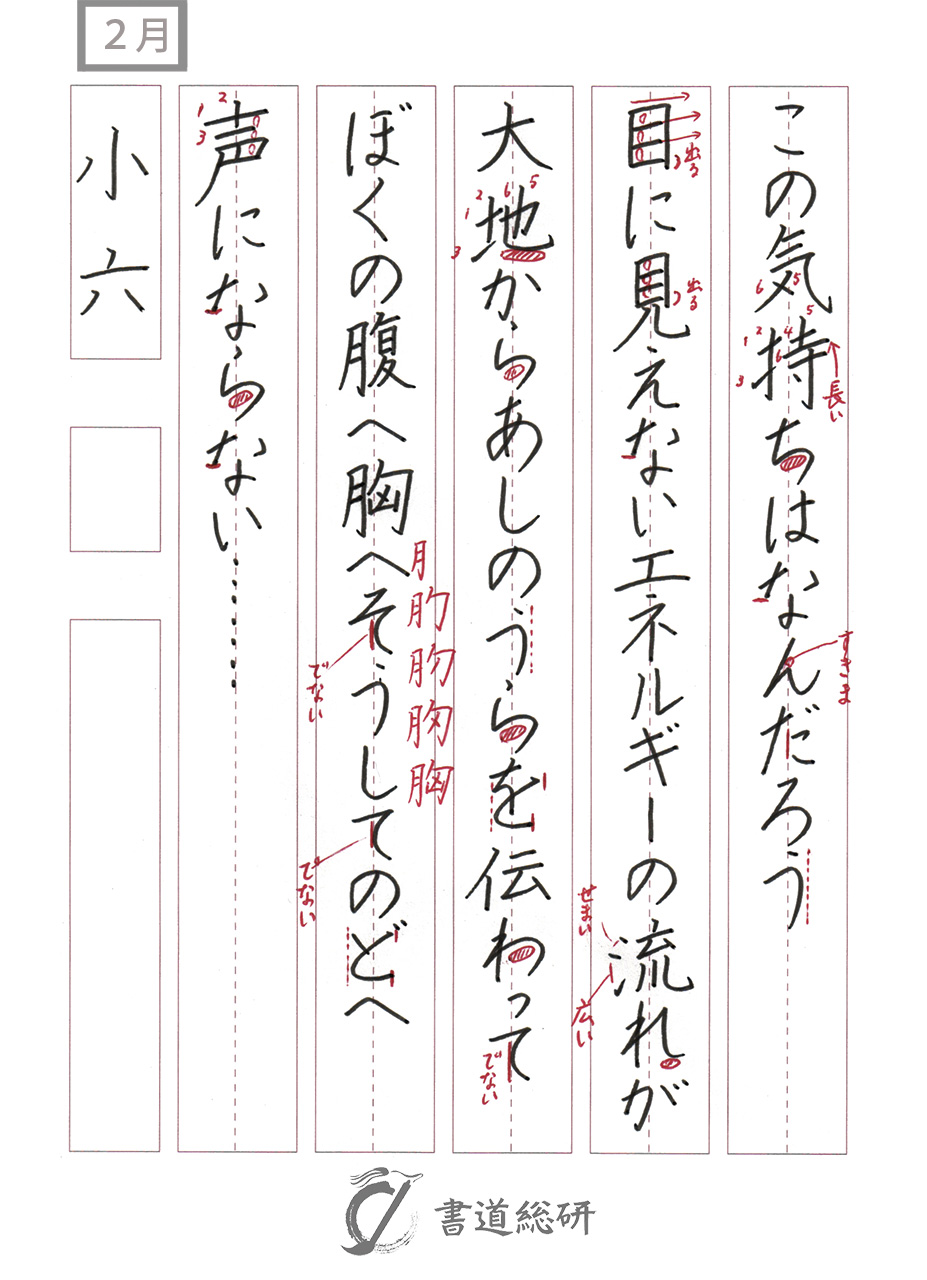 2月
この気持ちはなんだろう
目に見えないエネルギーの流れが
大地からあしのうらを伝わって
ぼくの腹へ胸へそうしてのどへ
声にならない……
小六
長い
すきま
出る
出る
せまい
広い
でない
月
胸
でない
でない
書道総研